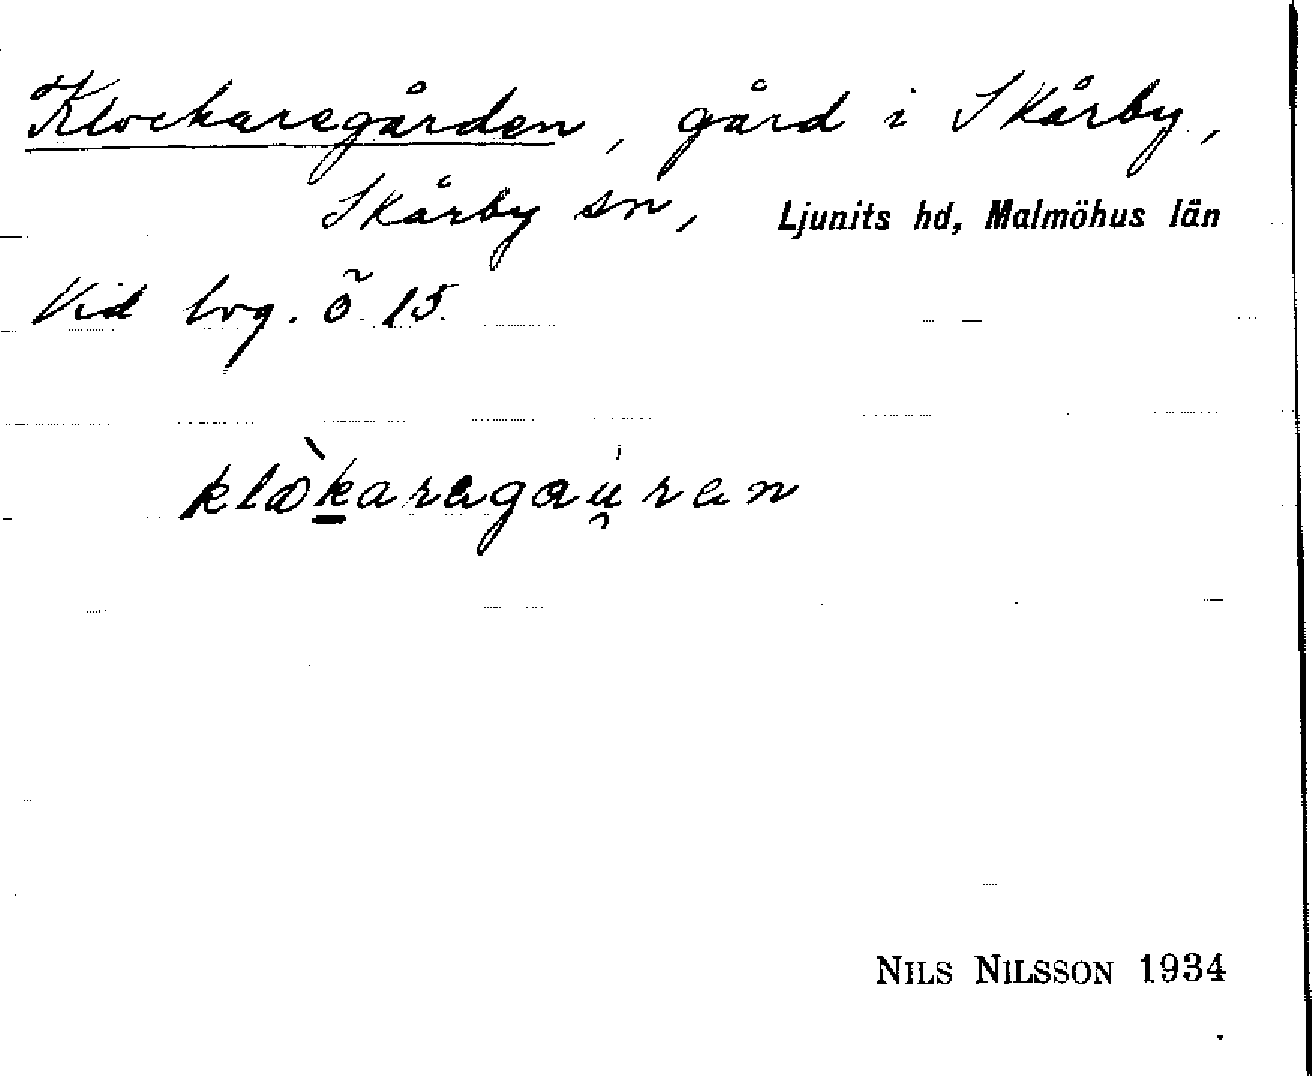 Klockaregården, gård i Skårby,
Skårby sn, Ljunits hd, Malmöhus län
Vid bog. õ 15.
klòkaragau̯ran
NILS NILSSON 1934